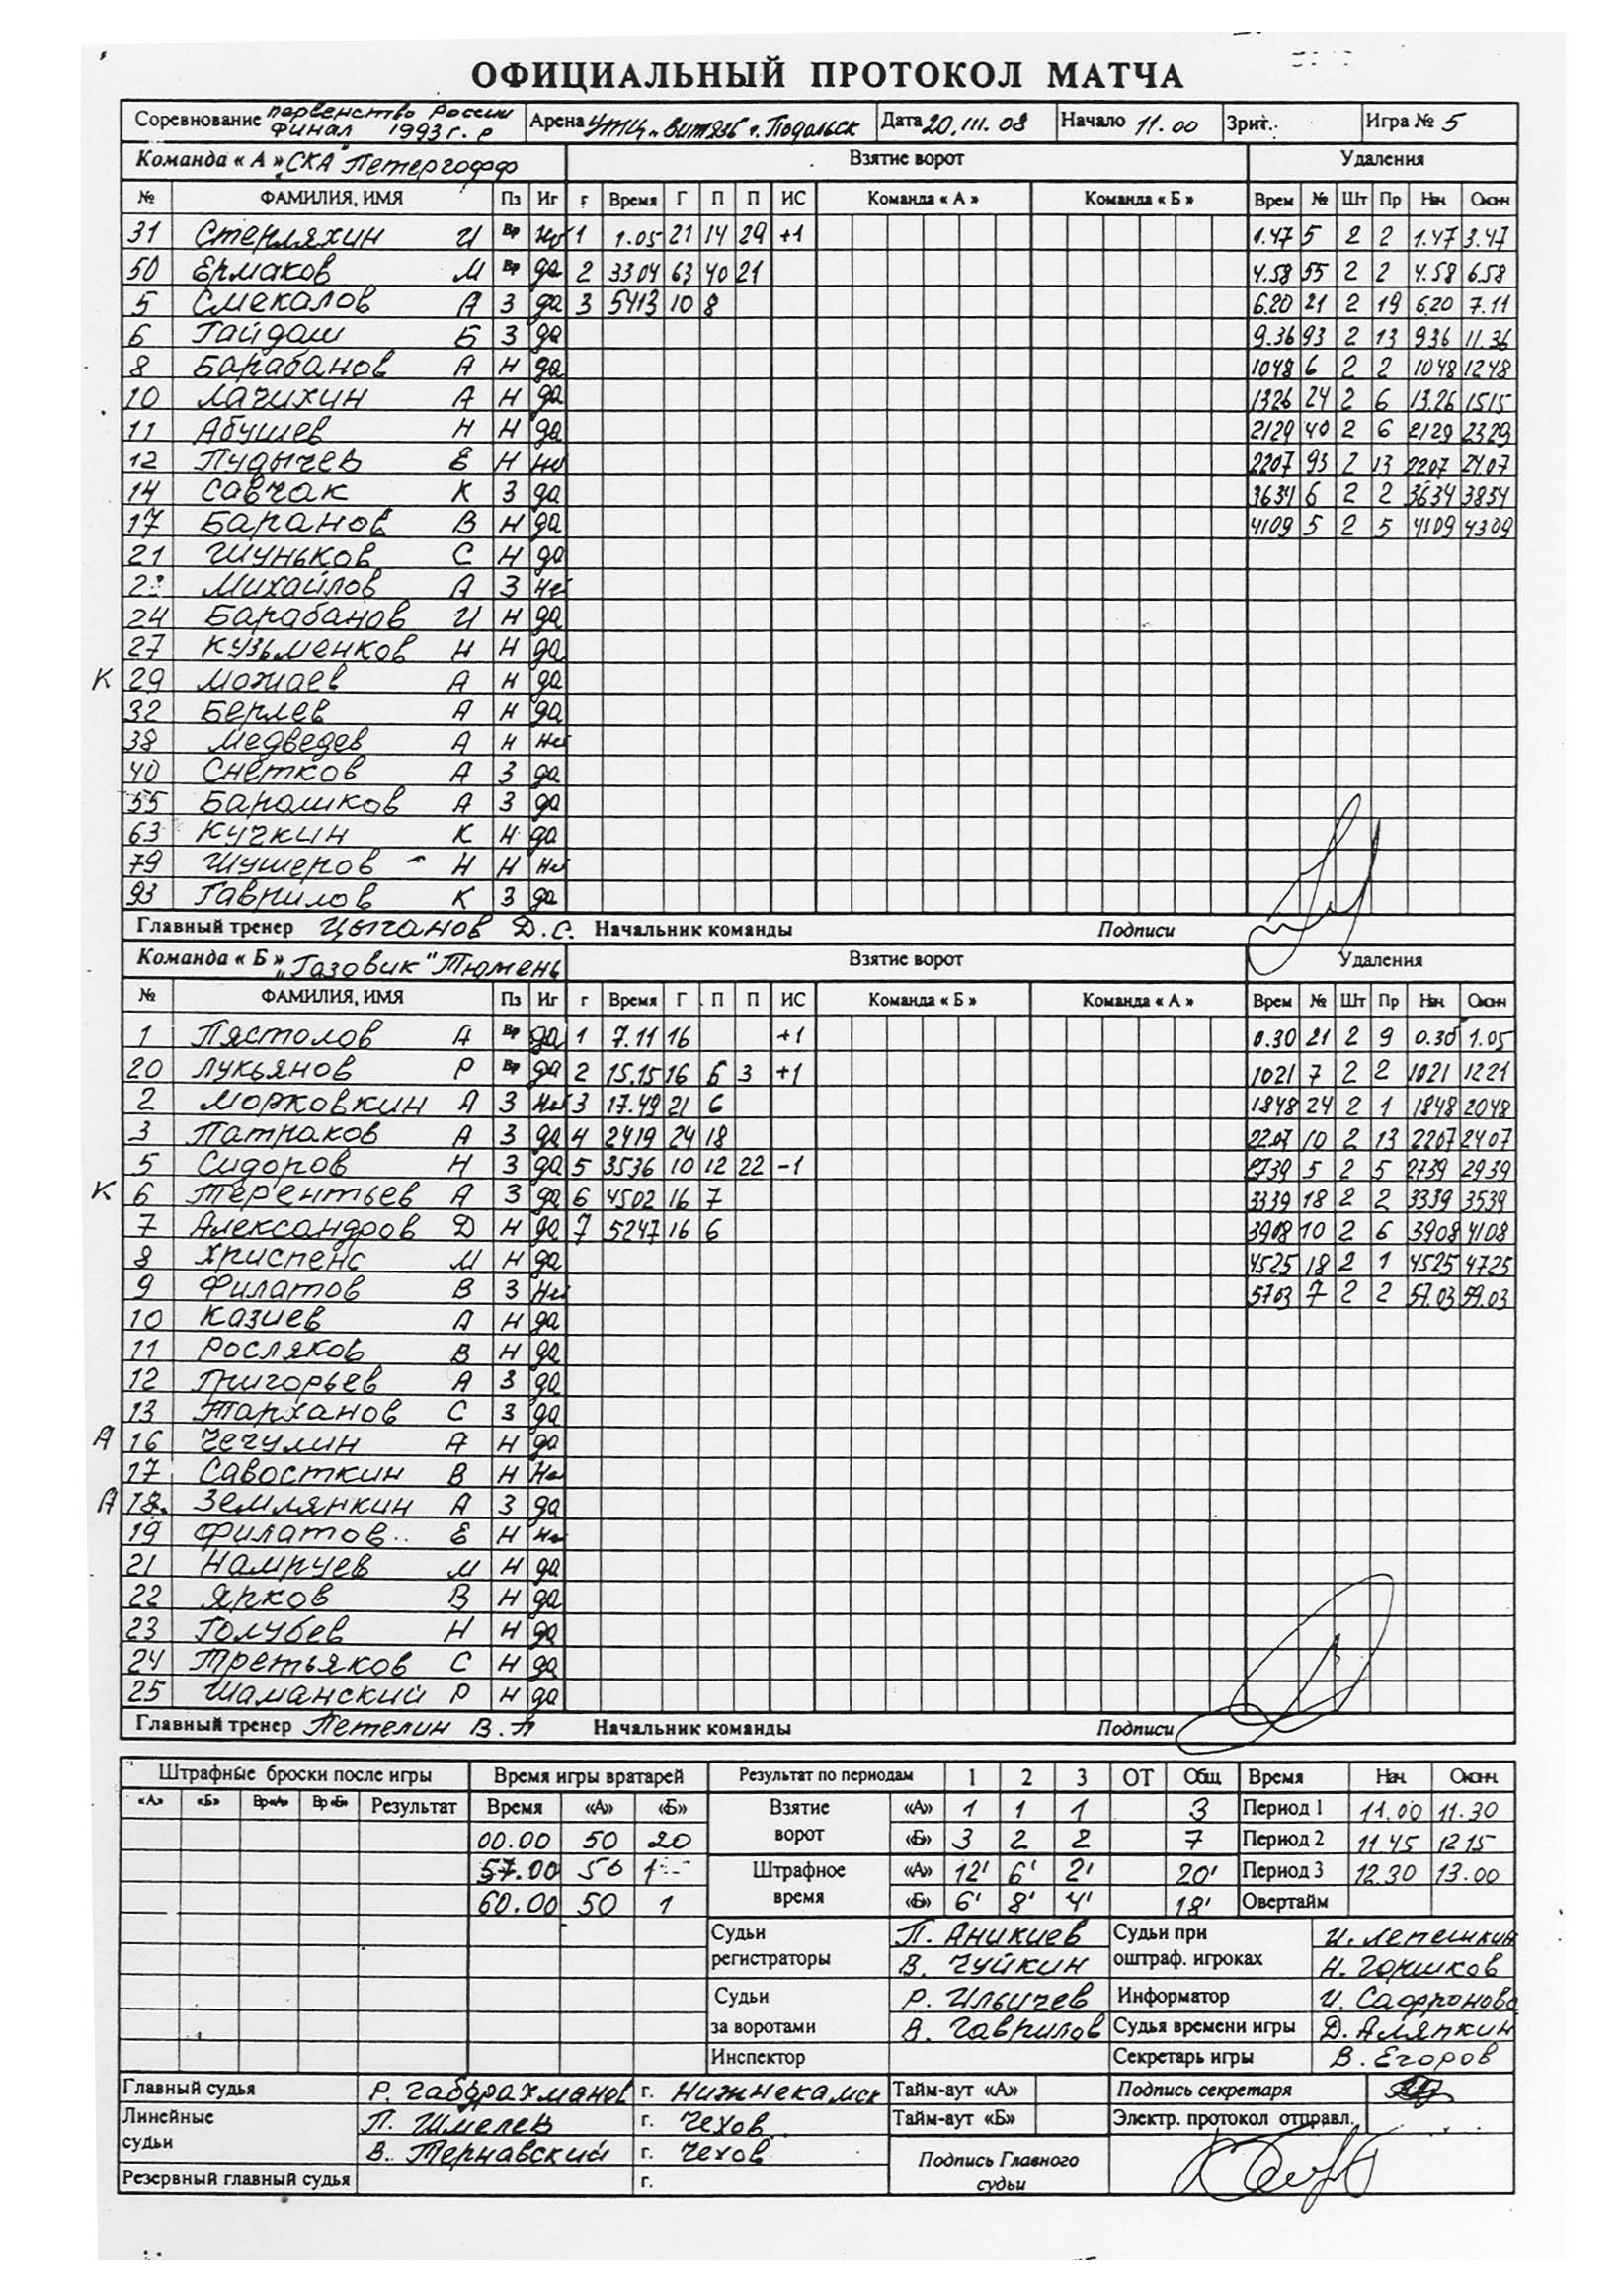 ОФИЦИАЛЬНЫЙ ПРОТОКОЛ МАТЧА
Соревнование первенство России финал 1993 г. р Арена УТЦ "Витязь г. Подольск Дата 20.III.08 Начало 11.00 Зрит. Игра № 5
Команда « А » "СКА" Петергофф Взятие ворот Удаления
№ ФАМИЛИЯ, ИМЯ Пз Иг г Время Г П П ИС Команда « А » Команда « Б » Врем № Шт Пр Нач Оконч
31 Стерляхин И Вр 1 1.05 21 14 29 +1 1.47 5 2 2 1.47 3.47
50 Ермаков М Вр да 2 3304 63 40 21 4.58 55 2 2 4.58 6.58
5 Смекалов А З да 3 5413 10 8 6.20 21 2 19 6.20 7.11
6 Гайдаш Б З да 9.36 93 2 13 936 11.36
8 Барабанов А Н да 1048 6 2 2 1048 1248
10 Лачихин А Н да 1326 24 2 6 13.26 1515
11 Абушев Н Н да 2129 40 2 6 2129 2329
12 Пудычев Е Н 2207 93 2 13 2207 2407
14 Савчак К З да 3634 6 2 2 3634 3834
17 Баранов В Н да 4109 5 2 5 4109 4309
21 Шуньков С Н да
Михайлов А З Не
24 Барабанов И Н да
27 Кузьменков Н Н да
К 29 Можаев А Н да
32 Берлев А Н да
38 Медведев А Н Не
40 Снетков А З да
55 Барашков А З да
63 Кучкин К Н да
79 Шушеров Н Н Не
93 Гаврилов К З да
Главный тренер Цыганов Д.С. Начальник команды Подписи
Команда « Б » "Газовик" Тюмень Взятие ворот Удаления
№ ФАМИЛИЯ, ИМЯ Пз Иг г Время Г П П ИС Команда « Б » Команда « А » Врем № Шт Пр Нач Оконч
1 Пястолов А Вр да 1 7.11 16 +1 0.30 21 2 9 0.30 1.05
20 Лукьянов Р Вр да 2 15.15 16 6 3 +1 1021 7 2 2 1021 1221
2 Морковкин А З Не 3 17.49 21 6 1848 24 2 1 1848 2048
3 Патраков А З да 4 2419 24 18 2207 10 2 13 2207 2407
5 Сидоров Н З да 5 3536 10 12 22 -1 2739 5 2 5 2739 2939
К 6 Терентьев А З да 6 4502 16 7 3339 18 2 2 3339 3539
7 Александров Д Н да 7 5247 16 6 3908 10 2 6 3908 4108
8 Хриспенс М Н да 4525 18 2 1 4525 4725
9 Филатов В З Не 5703 7 2 2 57.03 59.03
10 Казиев А Н да
11 Росляков В Н да
12 Григорьев А З да
13 Тарханов С З да
А 16 Чечулин А Н да
17 Савосткин В Н Не
А 18. Землянкин А З да
19 Филатов Е Н Не
21 Намруев М Н да
22 Ярков В Н да
23 Голубев Н Н да
24 Третьяков С Н да
25 Шаманский Р Н да
Главный тренер Петелин В.П Начальник команды Подписи
Штрафные броски после игры Время игры вратарей Результат по периодам 1 2 3 ОТ Общ Время Нач. Оконч.
«А» «Б» Вр«А» Вр«Б» Результат Время «А» «Б» Взятие ворот «А» 1 1 1 3 Период 1 11.00 11.30
00.00 50 20 «Б» 3 2 2 7 Период 2 11.45 12 15
57.00 50 1 Штрафное время «А» 12' 6' 2' 20' Период 3 12.30 13.00
60.00 50 1 «Б» 6' 8' 4' 18' Овертайм
Судьи регистраторы П. Аникиев Судьи при оштраф. игроках И. Лепешкин
В. Чуйкин Н. Горшков
Судьи за воротами Р. Ильичев Информатор И. Сафронова
В. Гаврилов Судья времени игры Д. Аляпкин
Инспектор Секретарь игры В. Егоров
Главный судья Р. Габдрахманов г. Нижнекамск Тайм-аут «А» Подпись секретаря
Линейные судьи П. Шмелев г. Чехов Тайм-аут «Б» Электр. протокол отправл.
В. Тернавский г. Чехов Подпись Главного судьи
Резервный главный судья г.